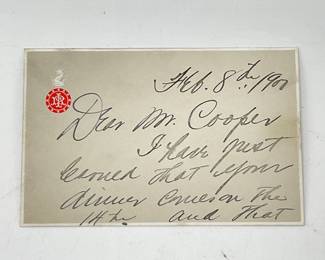 Feb. 8th 1900
Dear Mr. Cooper
I have just
learned that your
dinner comes on the
14th and that